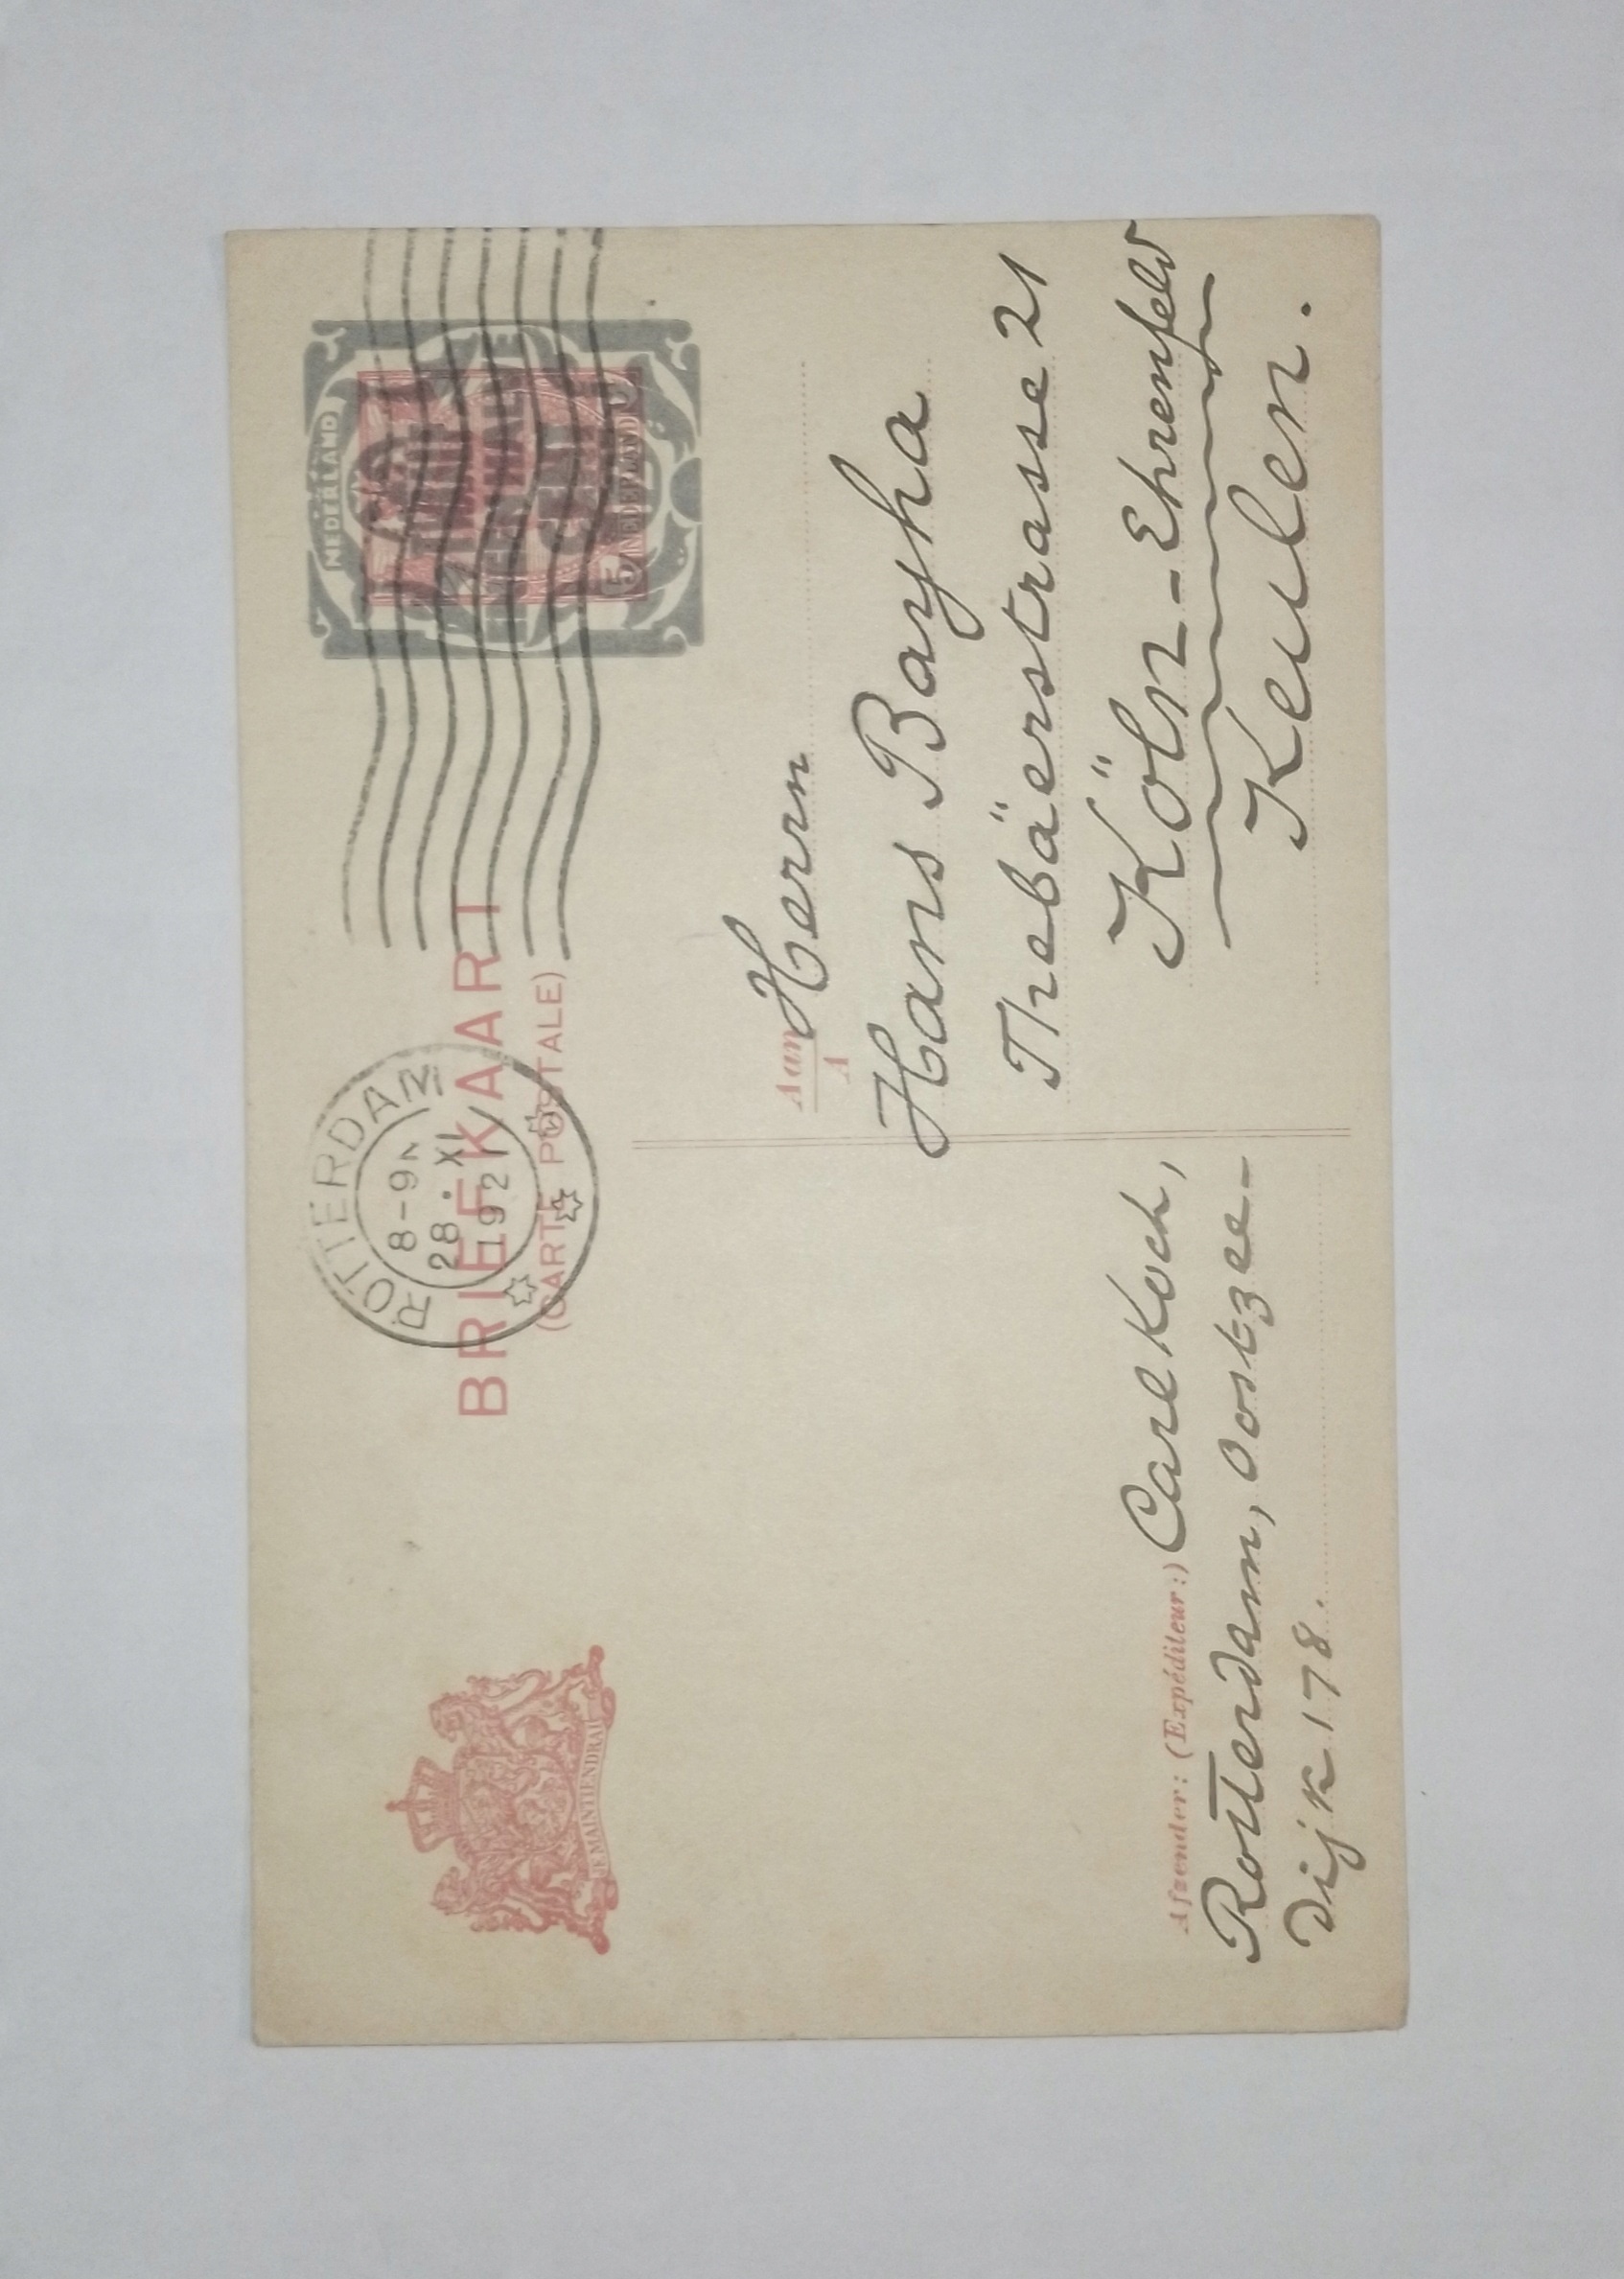 NEDERLAND
CENT
5 NEDERLAND
ROTTERDAM
8-9N
28.XI
1921
BRIEFKAART
(CARTE POSTALE)
JE MAINTIENDRAI
Aan Herrn
A
Hans Bayha
Thebäerstrasse 21
Köln-Ehrenfeld
Keulen.
Afzender: (Expéditeur:) Carl Koch,
Rotterdam, Oostzee-
dijk 178.